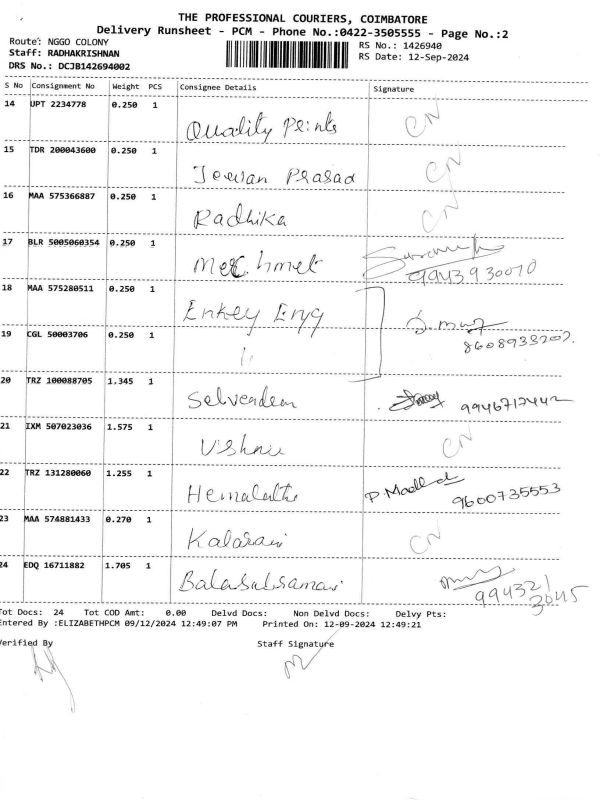 THE PROFESSIONAL COURIERS, COIMBATORE
Delivery Runsheet - PCM - Phone No.:0422-3505555 - Page No.:2
Route: NGGO COLONY
RS No.: 1426940
Staff: RADHAKRISHNAN
RS Date: 12-Sep-2024
DRS No.: DCJB142694002
S No Consignment No Weight PCS Consignee Details Signature
14 UPT 2234778 0.250 1 Quality Peints CN
15 TDR 200043600 0.250 1 Jeevan Prasad CN
16 MAA 575366887 0.250 1 Radhika CN
17 BLR 5005060354 0.250 1 9943930070
18 MAA 575280511 0.250 1 Enkey Eng
19 CGL 50003706 0.250 1 " 8608933207
20 TRZ 100088705 1.345 1 Selvendem 9946712442
21 IXM 507023036 1.575 1 Vishnu CN
22 TRZ 131280060 1.255 1 Hemalatha 9600735553
23 MAA 574881433 0.270 1 Kalarani CN
24 EDQ 16711882 1.705 1 Balasubramani 994321
3045
Tot Docs: 24 Tot COD Amt: 0.00 Delvd Docs: Non Delvd Docs: Delvy Pts:
Entered By :ELIZABETHPCM 09/12/2024 12:49:07 PM Printed On: 12-09-2024 12:49:21
Verified By Staff Signature